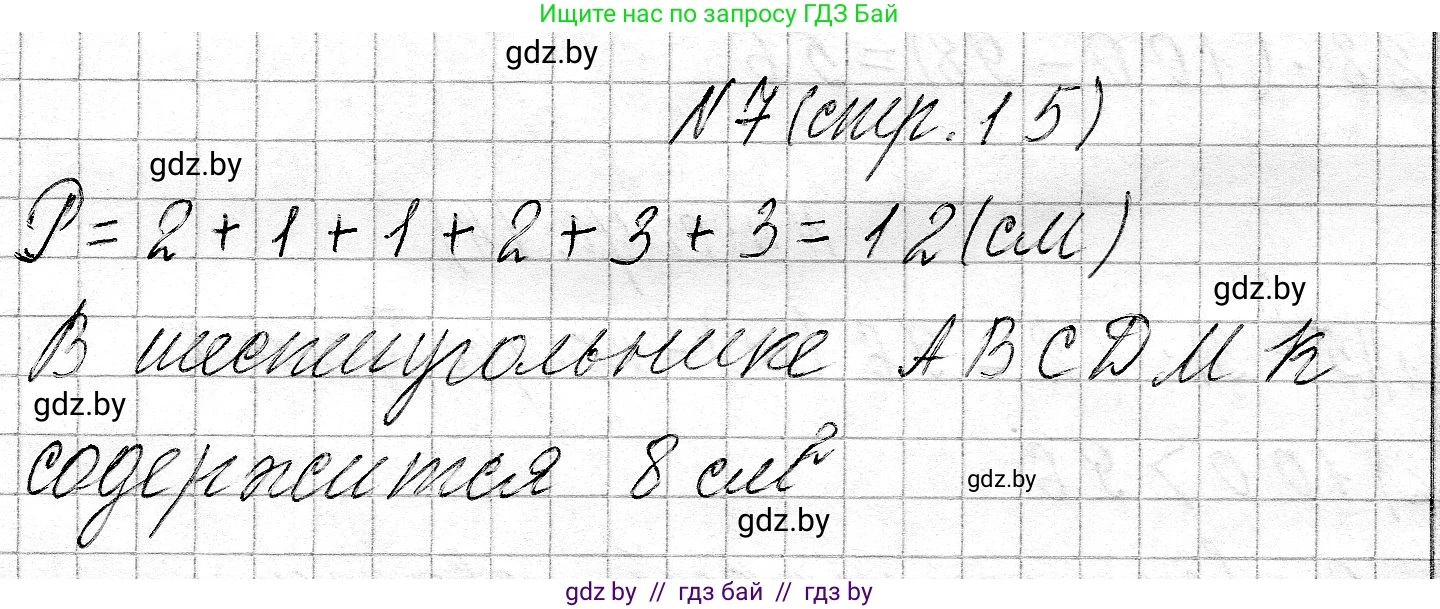 Ищите нас по запросу ГДЗ Бай
gdz.by
N 7 (стр. 15)
gdz.by
P = 2 + 1 + 1 + 2 + 3 + 3 = 12 (см)
gdz.by
В шестиугольнике ABCDMK
gdz.by
содержится 8 см²
gdz.by
gdz.by
gdz.by // гдз бай // гдз by